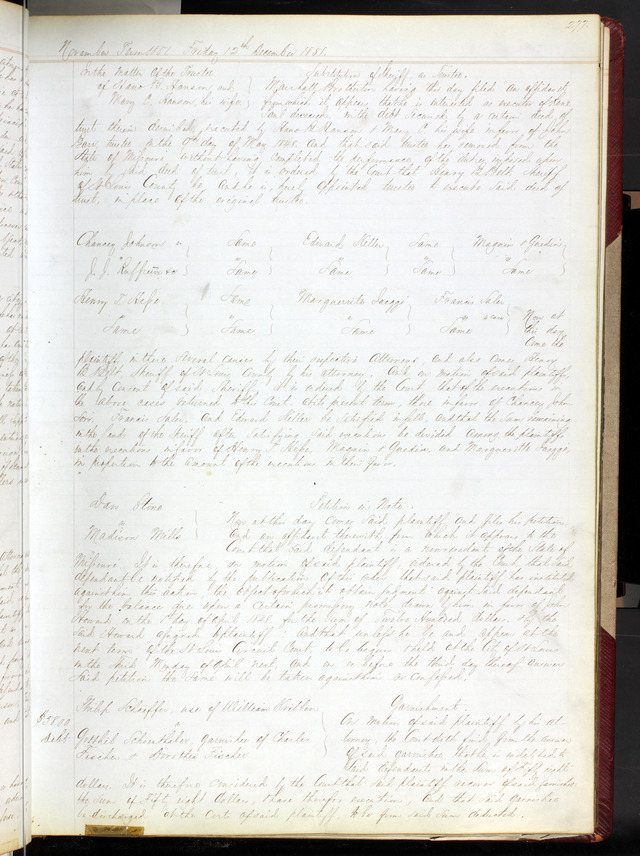 277
November Term 1851 Friday 12th December 1851.
In the matter of the Trustee
of Hans W. Hansen and
Mary C. Hanson his wife
Substitution of Sheriff as Trustee.
Marshall Brotherton having this day filed an affidavit
from which it appears that he is interested as executor of
deceased, in the debt secured by a certain deed of
trust therein described, executed by Hans H. Hansen & Mary C his wife in favor of John
trustee on the day of May 1840. And that said trustee has removed from the
State of Missouri without having completed the performance, of the duties imposed upon
him by said deed of trust, it is ordered by the Court that Henry B. Belt Sheriff
of St Louis County be, and he is, hereby appointed trustee to execute said deed of
trust, in place of the original trustee.
Chancey Johnson v Same Edward Keller Same Magnin & Guedin
J. J. Same Same Same Same
Henry T Same Marguerite Francis Saler
Same Same Same Same
Now at
this day
come the
plaintiffs in these several causes by their respective Attorneys and also comes Henry
B. Belt Sheriff of St Louis County by his attorney, And on motion of said plaintiffs,
and by consent of said Sheriff, It is ordered by the Court, that of the executions in
the above cases returned to the Court at the present term, those in favor of Chancey John
son, Francis Saler, and Edward Keller be satisfied in full, and that the sum remaining
in the hands of the sheriff after satisfying said executions be divided among the plaintiffs
in the executions in favor of Henry T. Magnin & Guedin and Marguerite
in proportion to the amount of the executions in their favor.
Dan
v
Madison Mills
Petition on Note.
Now at this day comes said plaintiff and files his petition,
And an affidavit therewith from which it appears to the
Court that said defendant is a nonresident of the State of
Missouri. It is therefore, on motion of said plaintiff, ordered by the Court, that said
defendant be notified by the publication of this order that said plaintiff has instituted
against him this action, the object of which is to obtain judgment against said defendant
for the balance due upon a certain promissory note drawn by him in favor of John
Howard on the 1st day of April 1838, for the sum of Twelve Hundred dollars & by the
said Howard assigned to plaintiff: And that unless he be and appear at the
next term of the St Louis Circuit Court, to be begun & held at the City of St Louis
on the third Monday of April next, and on or before the third day thereof answer
said petition the same will be taken against him as confessed.
$58.00
debt.
Philip Schaeffer, use of William
v
Gottlieb garnishee of Charles
Fischer & Dorothea Fischer
Garnishment.
On motion of said plaintiff by his at
torney, the Court doth find, from the answer
of said garnishee that he is indebted to
said defendants in the sum of Fifty eight
dollars. It is therefore considered by the Court that said plaintiff recover of said garnishee
the sum of Fifty eight dollars, & have thereof execution, And that said garnishee
be discharged at the costs of said plaintiff to be from said sum deducted.